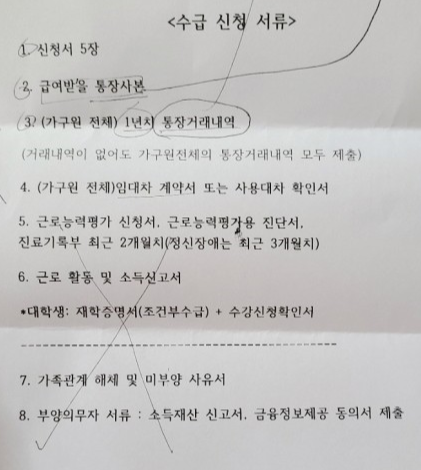 <수급 신청 서류>
1. 신청서 5장
2. 급여받을 통장사본
3. (가구원 전체) 1년치 통장거래내역
(거래내역이 없어도 가구원전체의 통장거래내역 모두 제출)
4. (가구원 전체)임대차 계약서 또는 사용대차 확인서
5. 근로능력평가 신청서, 근로능력평가용 진단서,
진료기록부 최근 2개월치(정신장애는 최근 3개월치)
6. 근로 활동 및 소득신고서
*대학생: 재학증명서(조건부수급) + 수강신청확인서
7. 가족관계 해체 및 미부양 사유서
8. 부양의무자 서류 : 소득재산 신고서, 금융정보제공 동의서 제출